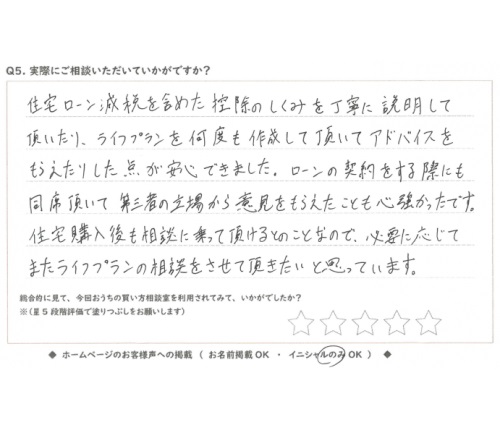 Q5. 実際にご相談いただいていかがですか?
住宅ローン減税を含めた控除のしくみを丁寧に説明して
頂いたり、ライフプランを何度も作成して頂いてアドバイスを
もらえたりした点が安心できました。ローンの契約をする際にも
同席頂いて第三者の立場から意見をもらえたことも心強かったです。
住宅購入後も相談に乗って頂けるとのことなので、必要に応じて
またライフプランの相談をさせて頂きたいと思っています。
総合的に見て、今回おうちの買い方相談室を利用されてみて、いかがでしたか?
※(星5段階評価で塗りつぶしをお願いします)
◆ ホームページのお客様声への掲載 ( お名前掲載OK ・ イニシャルのみOK ) ◆